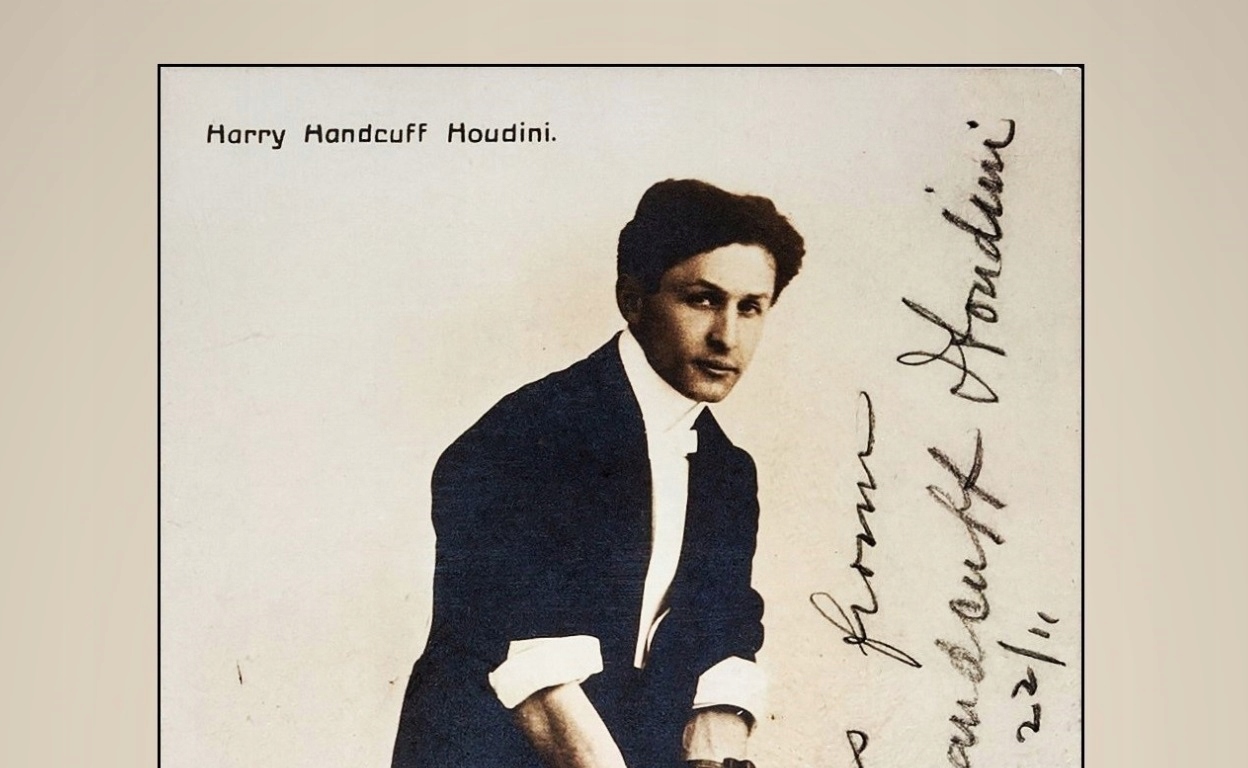 Harry Handcuff Houdini.
from
Handcuff Houdini
22/11